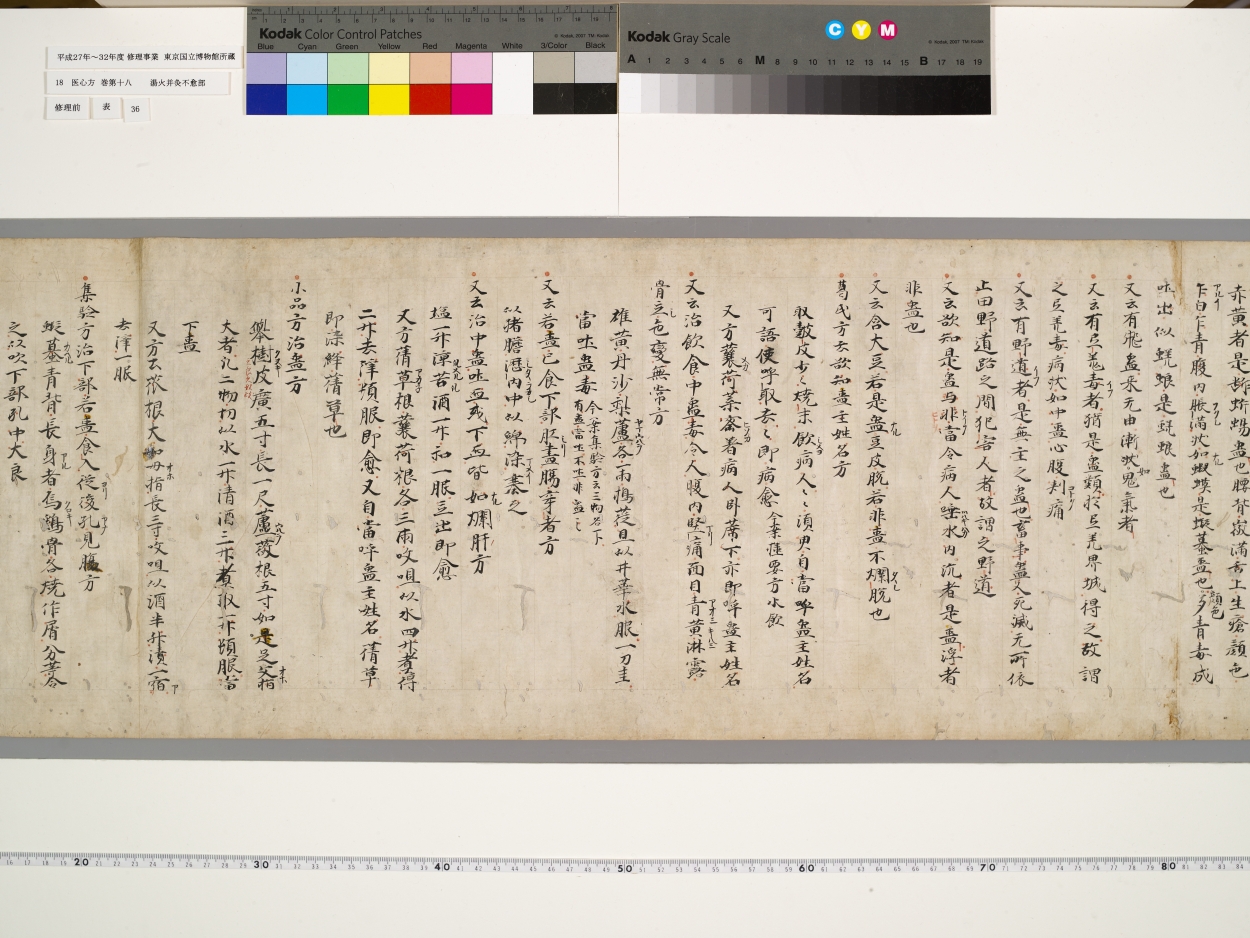 平成27年～32年度 修理事業 東京国立博物館所蔵
18 医心方 巻第十八 湯火并灸不愈部
修理前 表 36
Kodak Color Control Patches
© Kodak, 2007 TM: Kodak
Blue Cyan Green Yellow Red Magenta White 3/Color Black
Kodak Gray Scale
C Y M
© Kodak, 2007 TM: Kodak
A 1 2 3 4 5 6 M 8 9 10 11 12 13 14 15 B 17 18 19
赤黄者是蜥蜴蛊也脾脊寂満舌上生瘡顔色
乍白乍青腹内脹満状如蝦蟆是蝦蟇蛊也顔色多青毒成
吐出似蜣蜋是蜣蜋蛊也
又云有飛蛊来无由漸状如鬼氣者
之氐羌毒病状如中蛊心腹刺痛
又云有氐羌毒者猶是蛊類於氐羌界域得之故謂
又云有野道者是無主之蛊也畜事蛊人死滅无所依
止田野道路之間犯害人者故謂之野道
又云欲知是蛊与非當令病人唾水内沉者是蛊浮者
非蛊也
又云含大豆若是蛊豆皮脱若非蛊不爛脱也
葛氏方云欲知蛊主姓名方
取皷皮少〻燒末飲病人〻須臾自當呼蛊主姓名
可語使呼取去〻即病愈
又方蘘荷葉密着病人卧蓆下亦即呼蛊主姓名
又云治飲食中蛊毒令人腹内堅痛面目青黄淋露
骨立色變無常方
雄黄丹沙梨蘆各一兩搗蓰旦以井華水服一刀圭
當吐蛊毒
又云若蛊已食下部肛盡腸穿者方
以猪膽瀝内中以綿染塞之
又云治中蛊吐血或下血皆如爛肝方
塩一升淳苦酒一升和一服立出即愈
又方蒨草根蘘荷根各三兩㕮咀以水四升煮得
二升去滓頓服即愈又自當呼蛊主姓名蒨草
即染絳蒨草也
小品方治蛊方
欅樹皮廣五寸長一尺蘆薐根五寸如是足大指
大者凡二物切以水一升清酒三升煮取一升頓服當
下蛊
又方云㯃根大如母指長三寸㕮咀以酒半升漬一宿
去滓一服
集驗方治下部若蛊食人從後孔見腹方
蝦蟇青背長身者烏鷄骨各燒作屑分等合
之以吹下部孔中大良
20 30 40 50 60 70 80